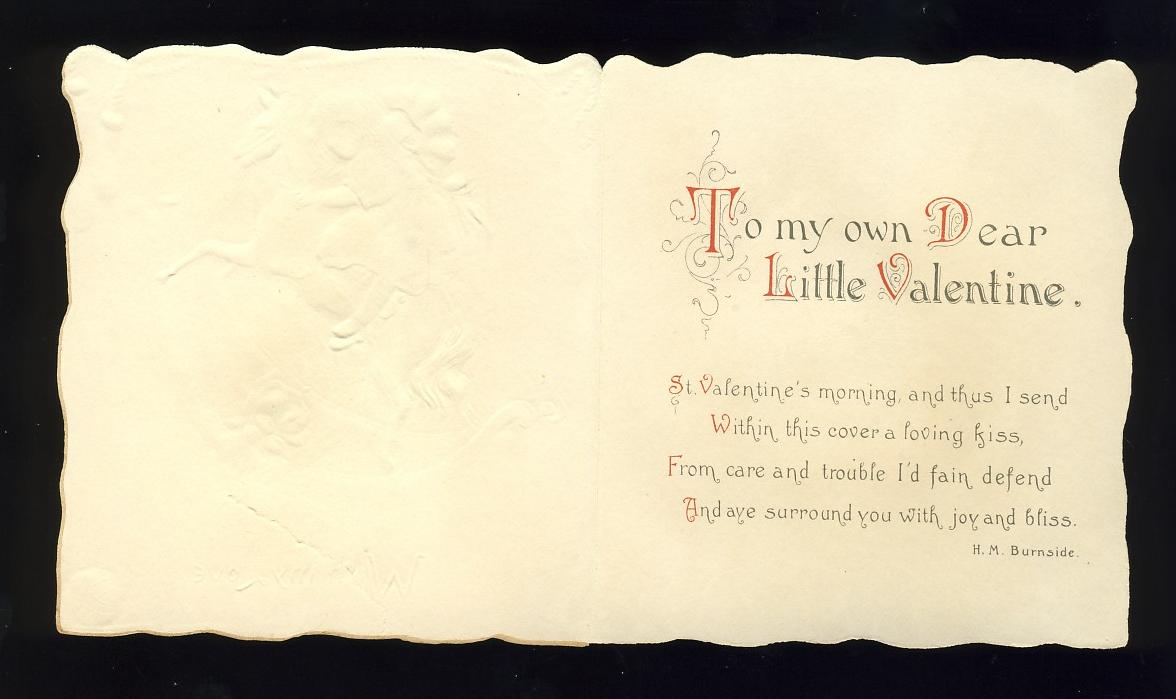 To my own Dear
Little Valentine.
St. Valentine's morning, and thus I send
Within this cover a loving kiss,
From care and trouble I'd fain defend
And aye surround you with joy and bliss.
H. M. Burnside.